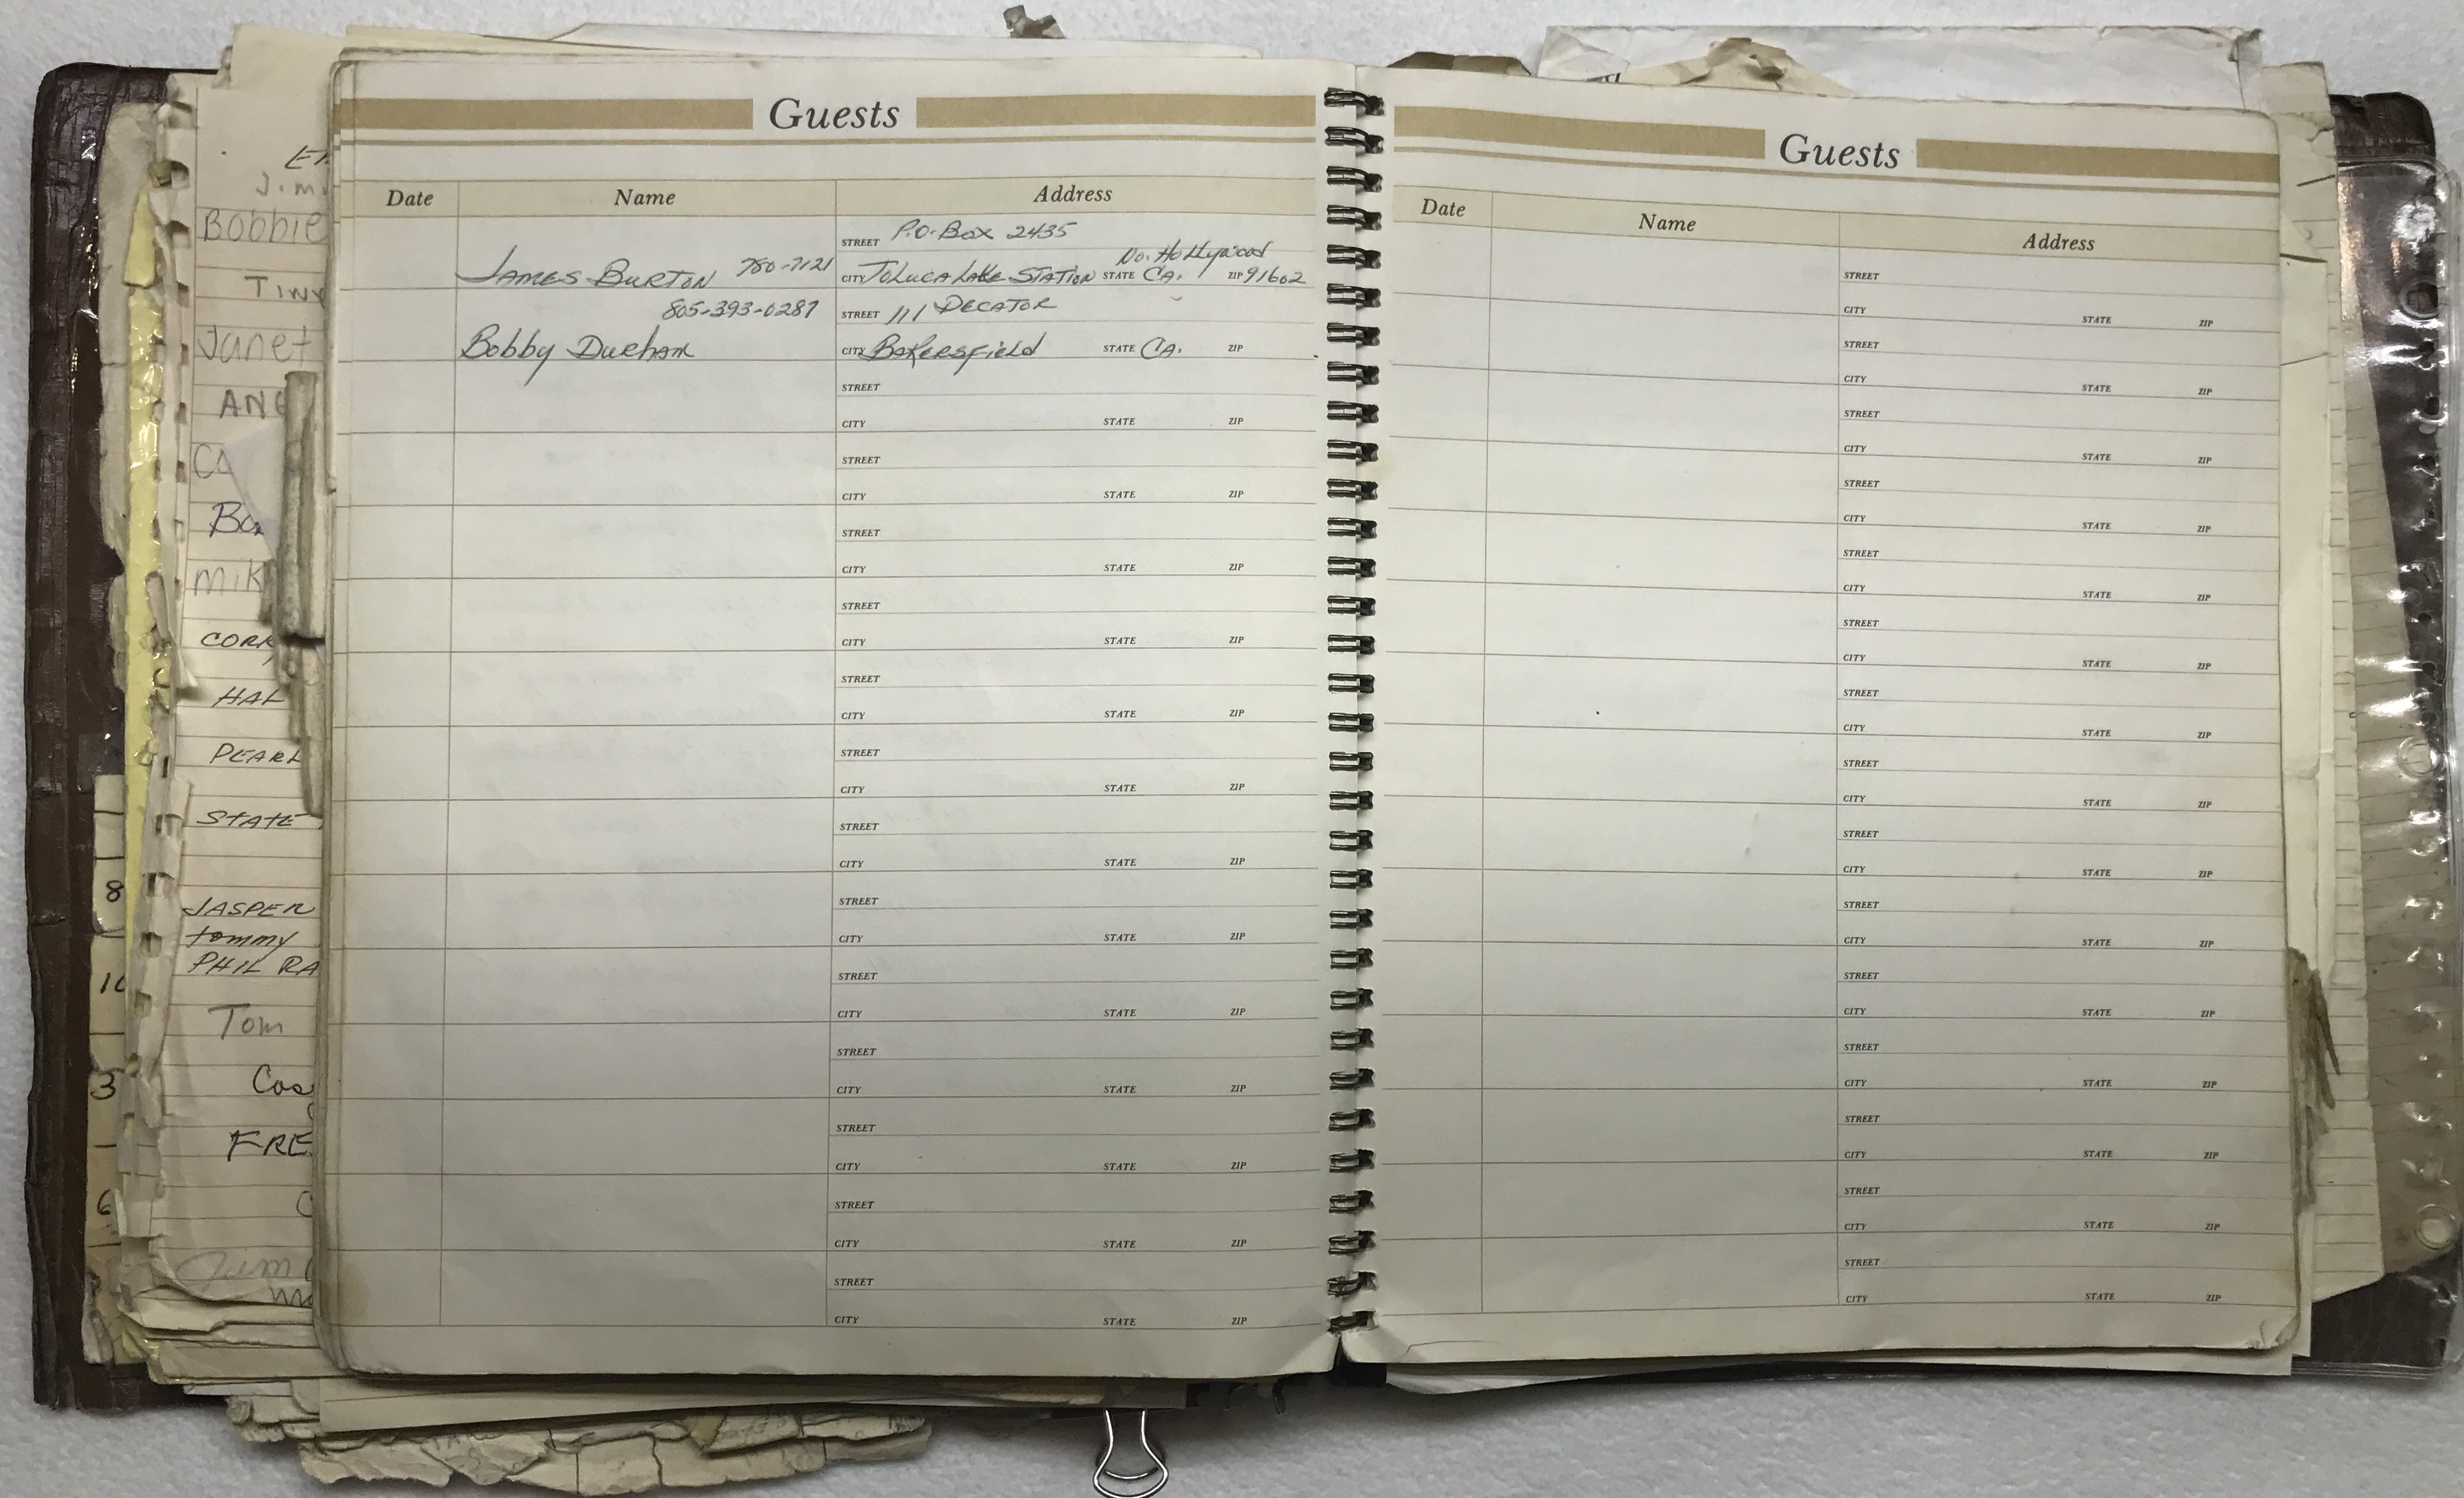 Guests
Date Name Address
STREET P.O. Box 2435
No. Hollywood
JAMES BURTON 780-7121 CITY Toluca Lake Station STATE CA. ZIP 91602
805-393-0287 STREET 111 DECATOR
Bobby Durham CITY Bakersfield STATE CA. ZIP
STREET
CITY STATE ZIP
STREET
CITY STATE ZIP
STREET
CITY STATE ZIP
STREET
CITY STATE ZIP
STREET
CITY STATE ZIP
STREET
CITY STATE ZIP
STREET
CITY STATE ZIP
STREET
CITY STATE ZIP
STREET
CITY STATE ZIP
STREET
CITY STATE ZIP
STREET
CITY STATE ZIP
STREET
CITY STATE ZIP
STREET
CITY STATE ZIP
Guests
Date Name Address
STREET
CITY STATE ZIP
STREET
CITY STATE ZIP
STREET
CITY STATE ZIP
STREET
CITY STATE ZIP
STREET
CITY STATE ZIP
STREET
CITY STATE ZIP
STREET
CITY STATE ZIP
STREET
CITY STATE ZIP
STREET
CITY STATE ZIP
STREET
CITY STATE ZIP
STREET
CITY STATE ZIP
STREET
CITY STATE ZIP
STREET
CITY STATE ZIP
STREET
CITY STATE ZIP
STREET
CITY STATE ZIP
Bobbie
Tiny
Janet
HAL
PEARL
STATE
8
JASPER
tommy
PHIL RA
10
Tom
3
FRE
6
Jim